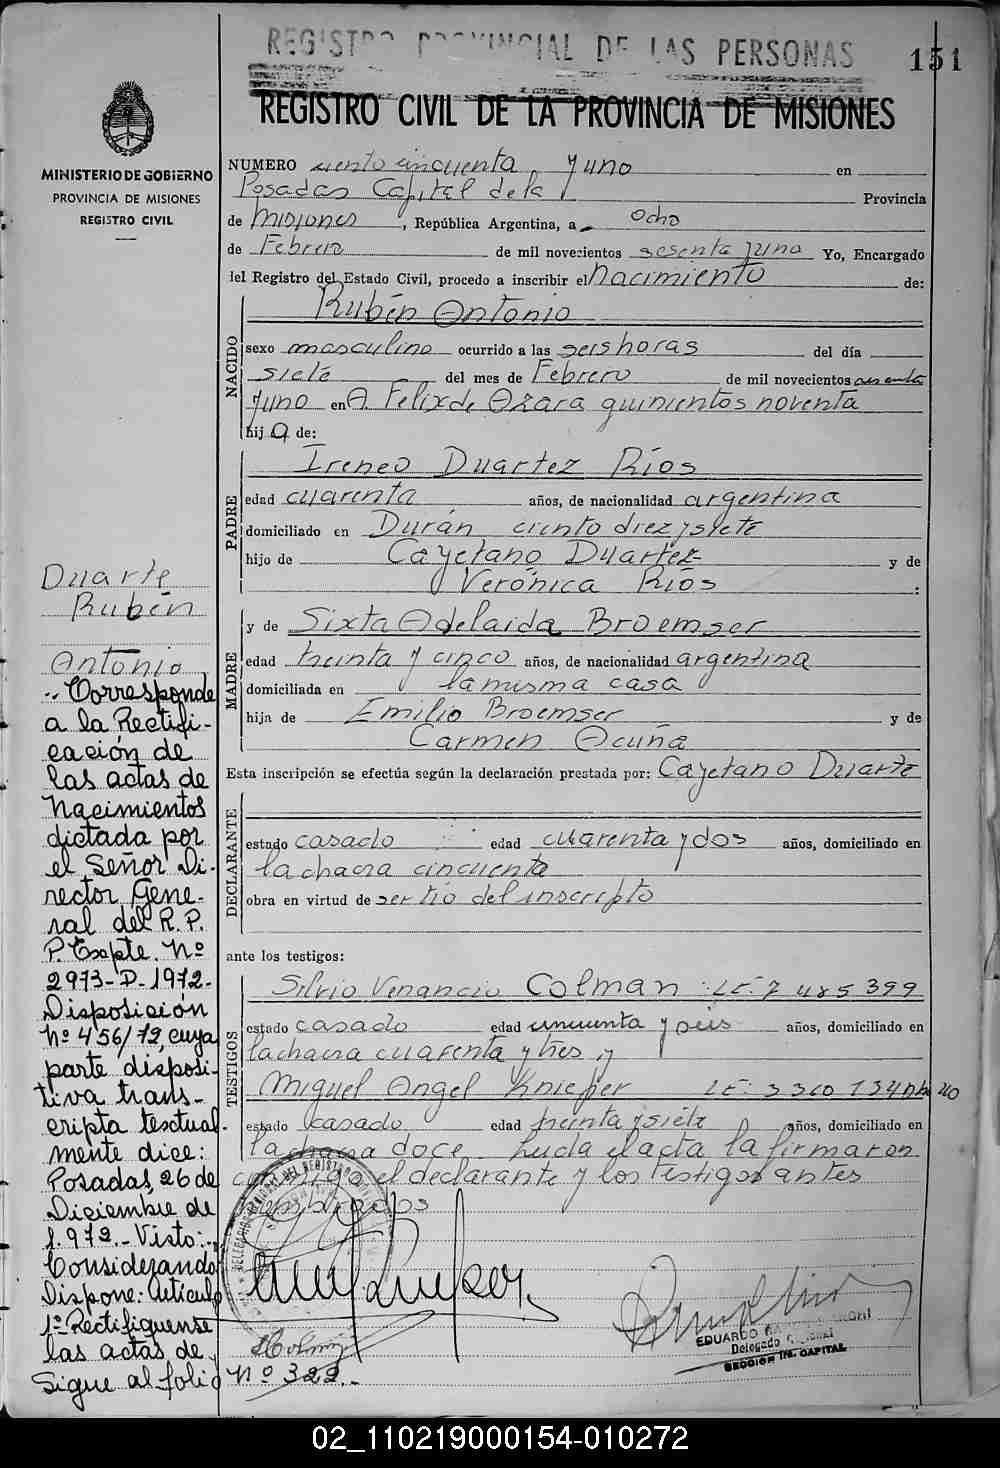 REGISTRO PROVINCIAL DE LAS PERSONAS
151
REGISTRO CIVIL DE LA PROVINCIA DE MISIONES
MINISTERIO DE GOBIERNO
PROVINCIA DE MISIONES
REGISTRO CIVIL
NUMERO ciento cincuenta y uno en
Posadas Capital de la Provincia
de Misiones, República Argentina, a ocho
de Febrero de mil novecientos sesenta y uno Yo, Encargado
del Registro del Estado Civil, procedo a inscribir el Nacimiento de:
NACIDO
Rubén Antonio
sexo masculino ocurrido a las seis horas del día
siete del mes de Febrero de mil novecientos sesenta
y uno en A. Felix de Azara quinientos noventa
hijo de:
PADRE
Ireneo Duartez Ríos
edad cuarenta años, de nacionalidad argentina
domiciliado en Durán ciento diez y siete
hijo de Cayetano Duartez y de
Verónica Ríos :
MADRE
y de Sixta Adelaida Broemser
edad treinta y cinco años, de nacionalidad argentina
domiciliada en la misma casa
hija de Emilio Broemser y de
Carmen Acuña
Esta inscripción se efectúa según la declaración prestada por: Cayetano Duarte
DECLARANTE
estado casado edad cuarenta y dos años, domiciliado en
la chacra cincuenta
obra en virtud de ser tío del inscripto
ante los testigos:
TESTIGOS
Silvio Venancio Colman L.E. 7 485 399
estado casado edad cincuenta y seis años, domiciliado en
la chacra cuarenta y tres y
Miguel Angel Knieper L.E.
estado casado edad treinta y siete años, domiciliado en
la chacra doce. Leida el acta la firmaron
conmigo el declarante y los testigos antes
Duarte
Rubén
Antonio
.. Corresponde
a la Rectifi-
cación de
las actas de
Nacimientos
dictada por
el Señor Di-
rector Gene-
ral del R. P.
P. Expte. Nº
2973-D-1972.
Disposición
Nº 456/72, cuya
parte disposi-
tiva trans-
cripta textual-
mente dice:
Posadas, 26 de
Diciembre de
1.972.- Visto:-
Considerando
Dispone: Artículo
1º Rectifiquense
las actas de
Sigue al folio Nº 322.-
EDUARDO
Delegado
SECCION CAPITAL
02_110219000154-010272